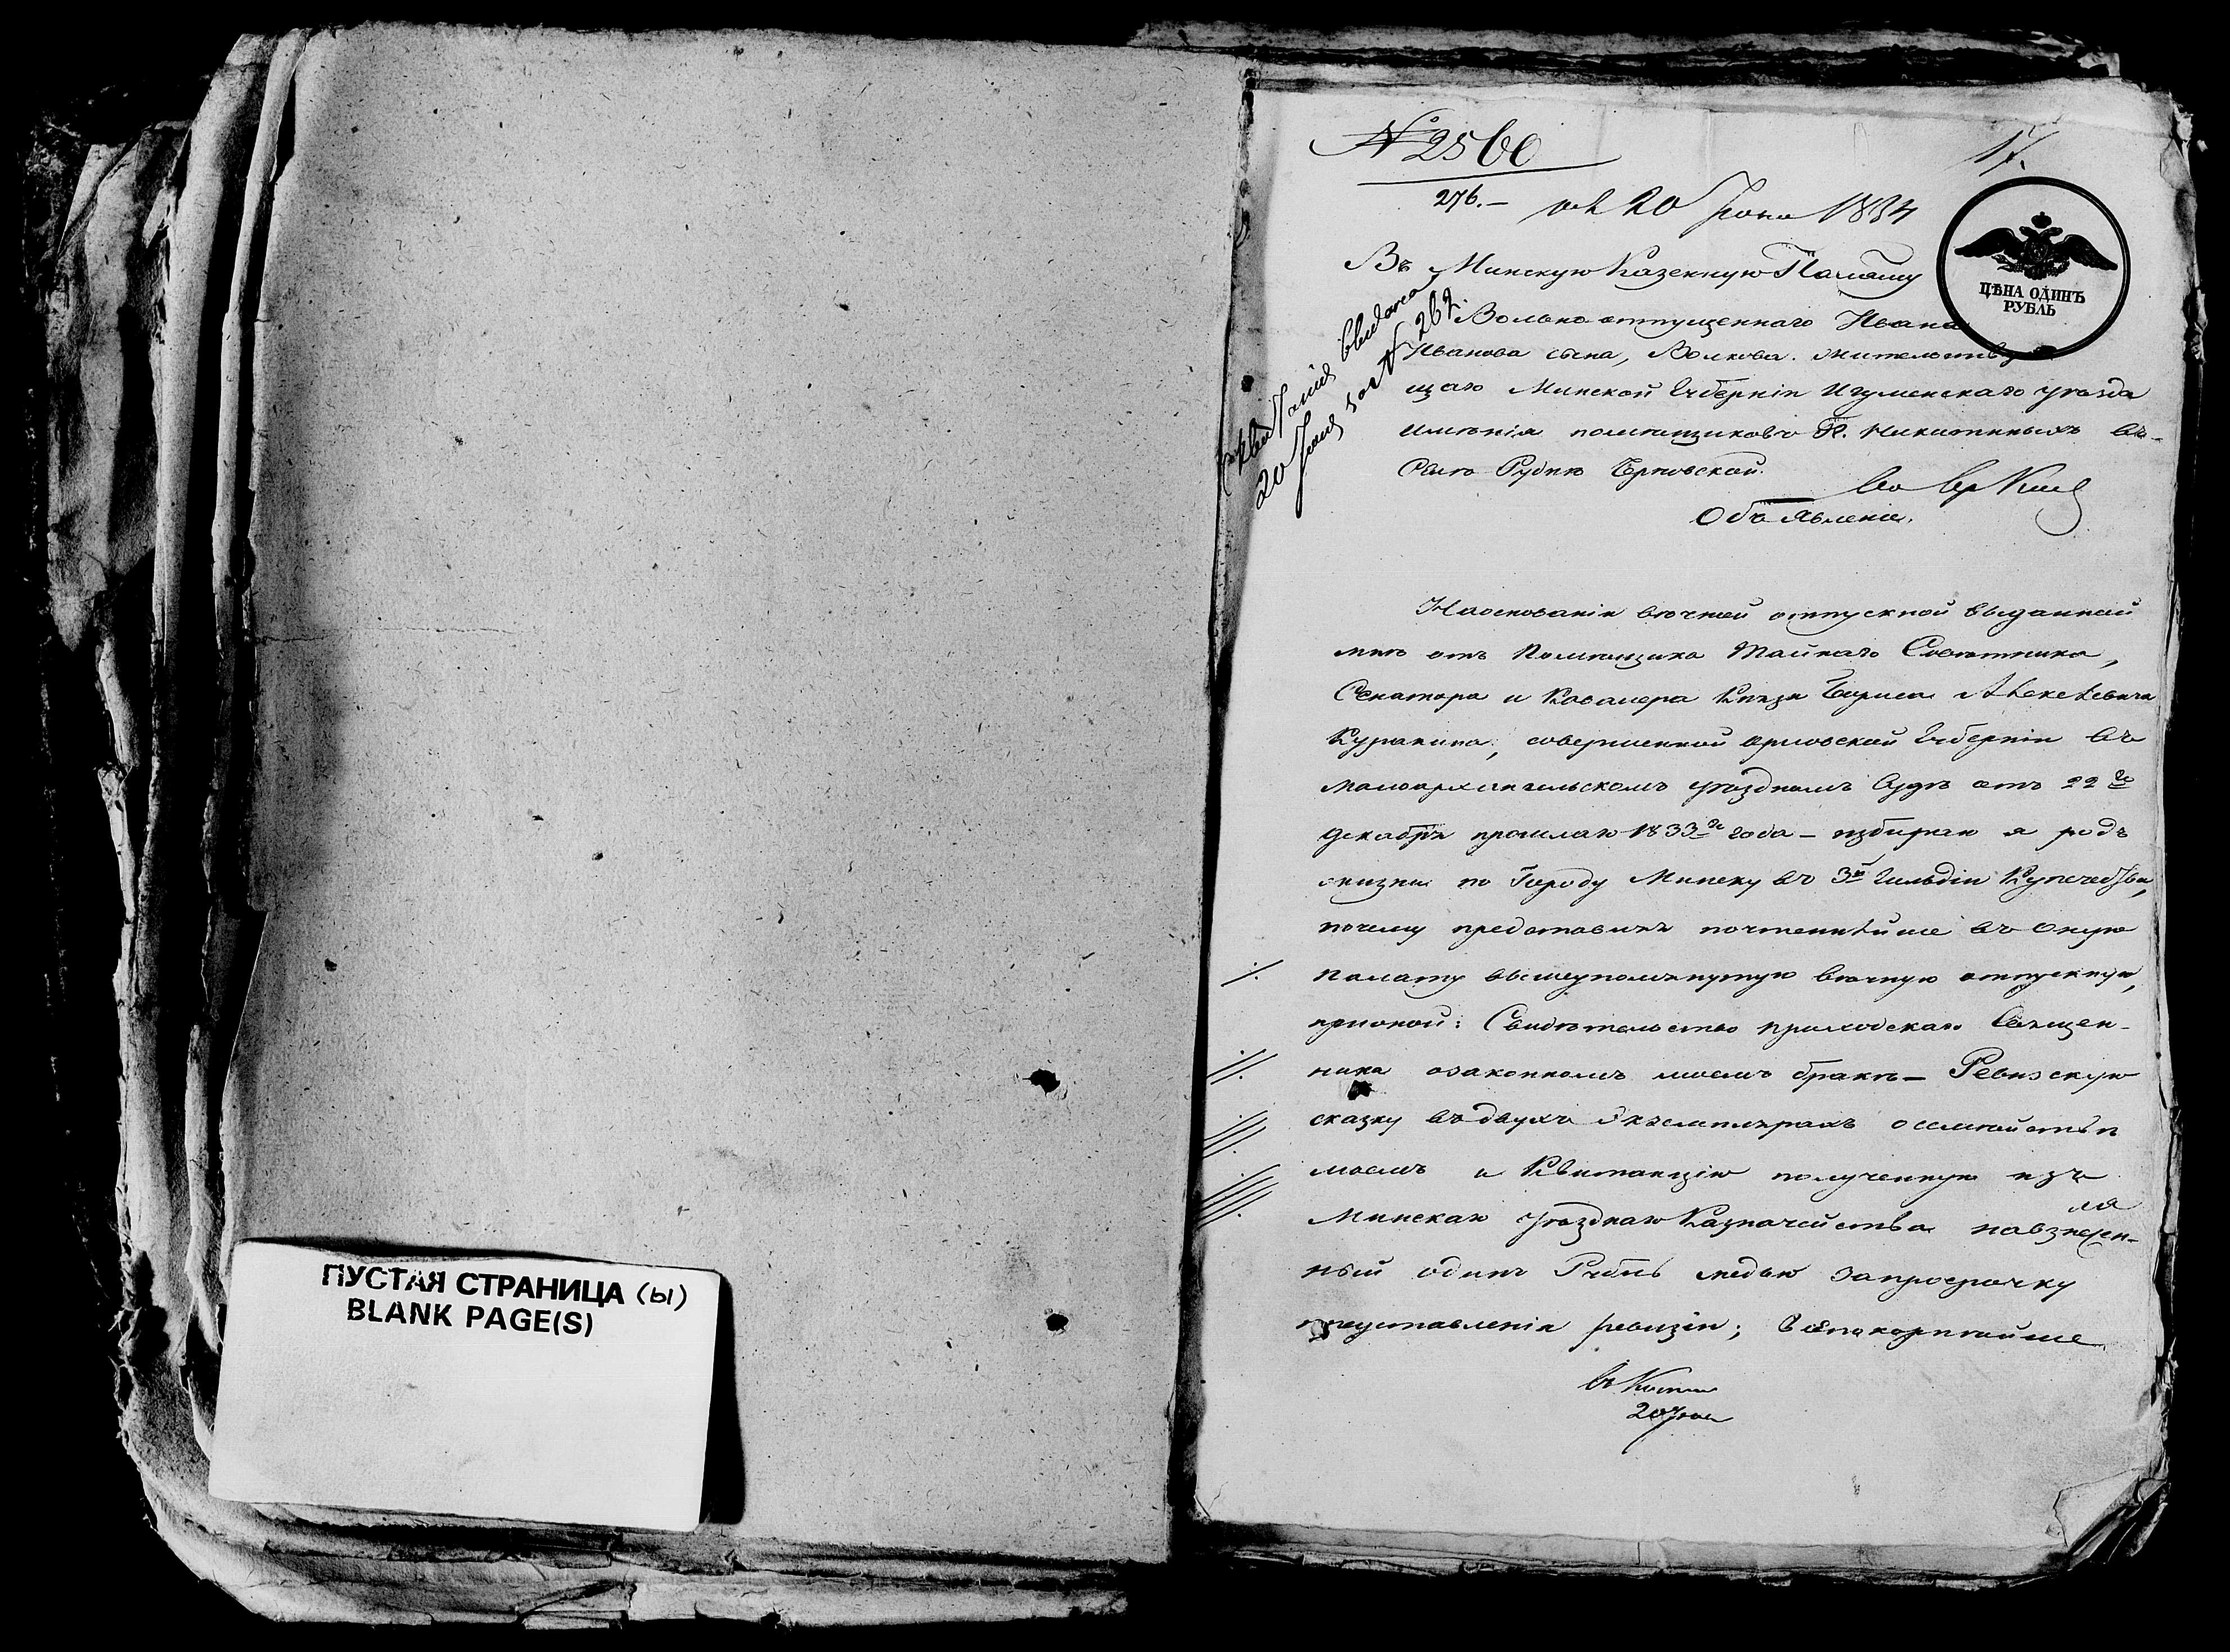 ПУСТАЯ СТРАНИЦА (Ы)
BLANK PAGE(S)
№ 2560
17.
276.— 20 Іюня 1834
ЦѢНА ОДИНЪ
РУБЛЬ
Въ Минскую Казенную Палату
Вольно отпущеннаго Ивана
Иванова сына, Волкова. жительству
щаго Минской Губерніи Игуменскаго уезда
имѣнія помѣщиковъ Г. Никитиныхъ въ
Рудню
выдано
20 Іюня за № 262.
Объявленіе.
Наоснованіи вѣчной отпускной выданной
мнѣ отъ Помѣщика Тайнаго Совѣтника,
Сенатора и Кавалера Князя Бориса Алексѣевича
Куракина, совершенной орловской Губерніи въ
малоархангельскомъ уѣздномъ Судѣ отъ 22го
декабря прошлаго 1833го года — избираю я родъ
жизни по Городу Минску въ 3й Гильдіи Купечества,
почему представляя почтеннѣйше въ оную
палату вышеупомянутую вѣчную отпускную,
прионой: Свидѣтельство приходскаго Священ-
ника озаконномъ моемъ бракѣ — Ревизскую
сказку въ двухъ экземплярахъ осемействѣ
моемъ и Квитанцію полученную изъ
Минскаго уѣзднаго Казначейства
ный одинъ Рубль медью запросрочку
представленія ревизіи; всепокорнѣйше
20 Іюня